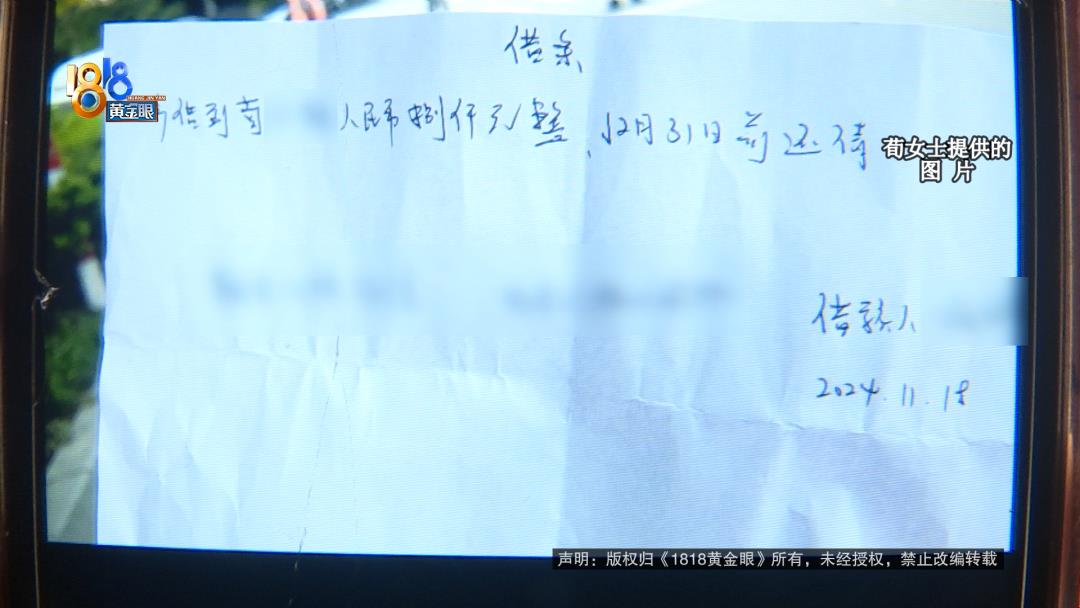 借条
借到荀 人民币捌仟元整、12月31日前还清
借款人
2024.11.18
1818
HUANG JIN YAN
黄金眼
荀女士提供的
图片
声明：版权归《1818黄金眼》所有，未经授权，禁止改编转载